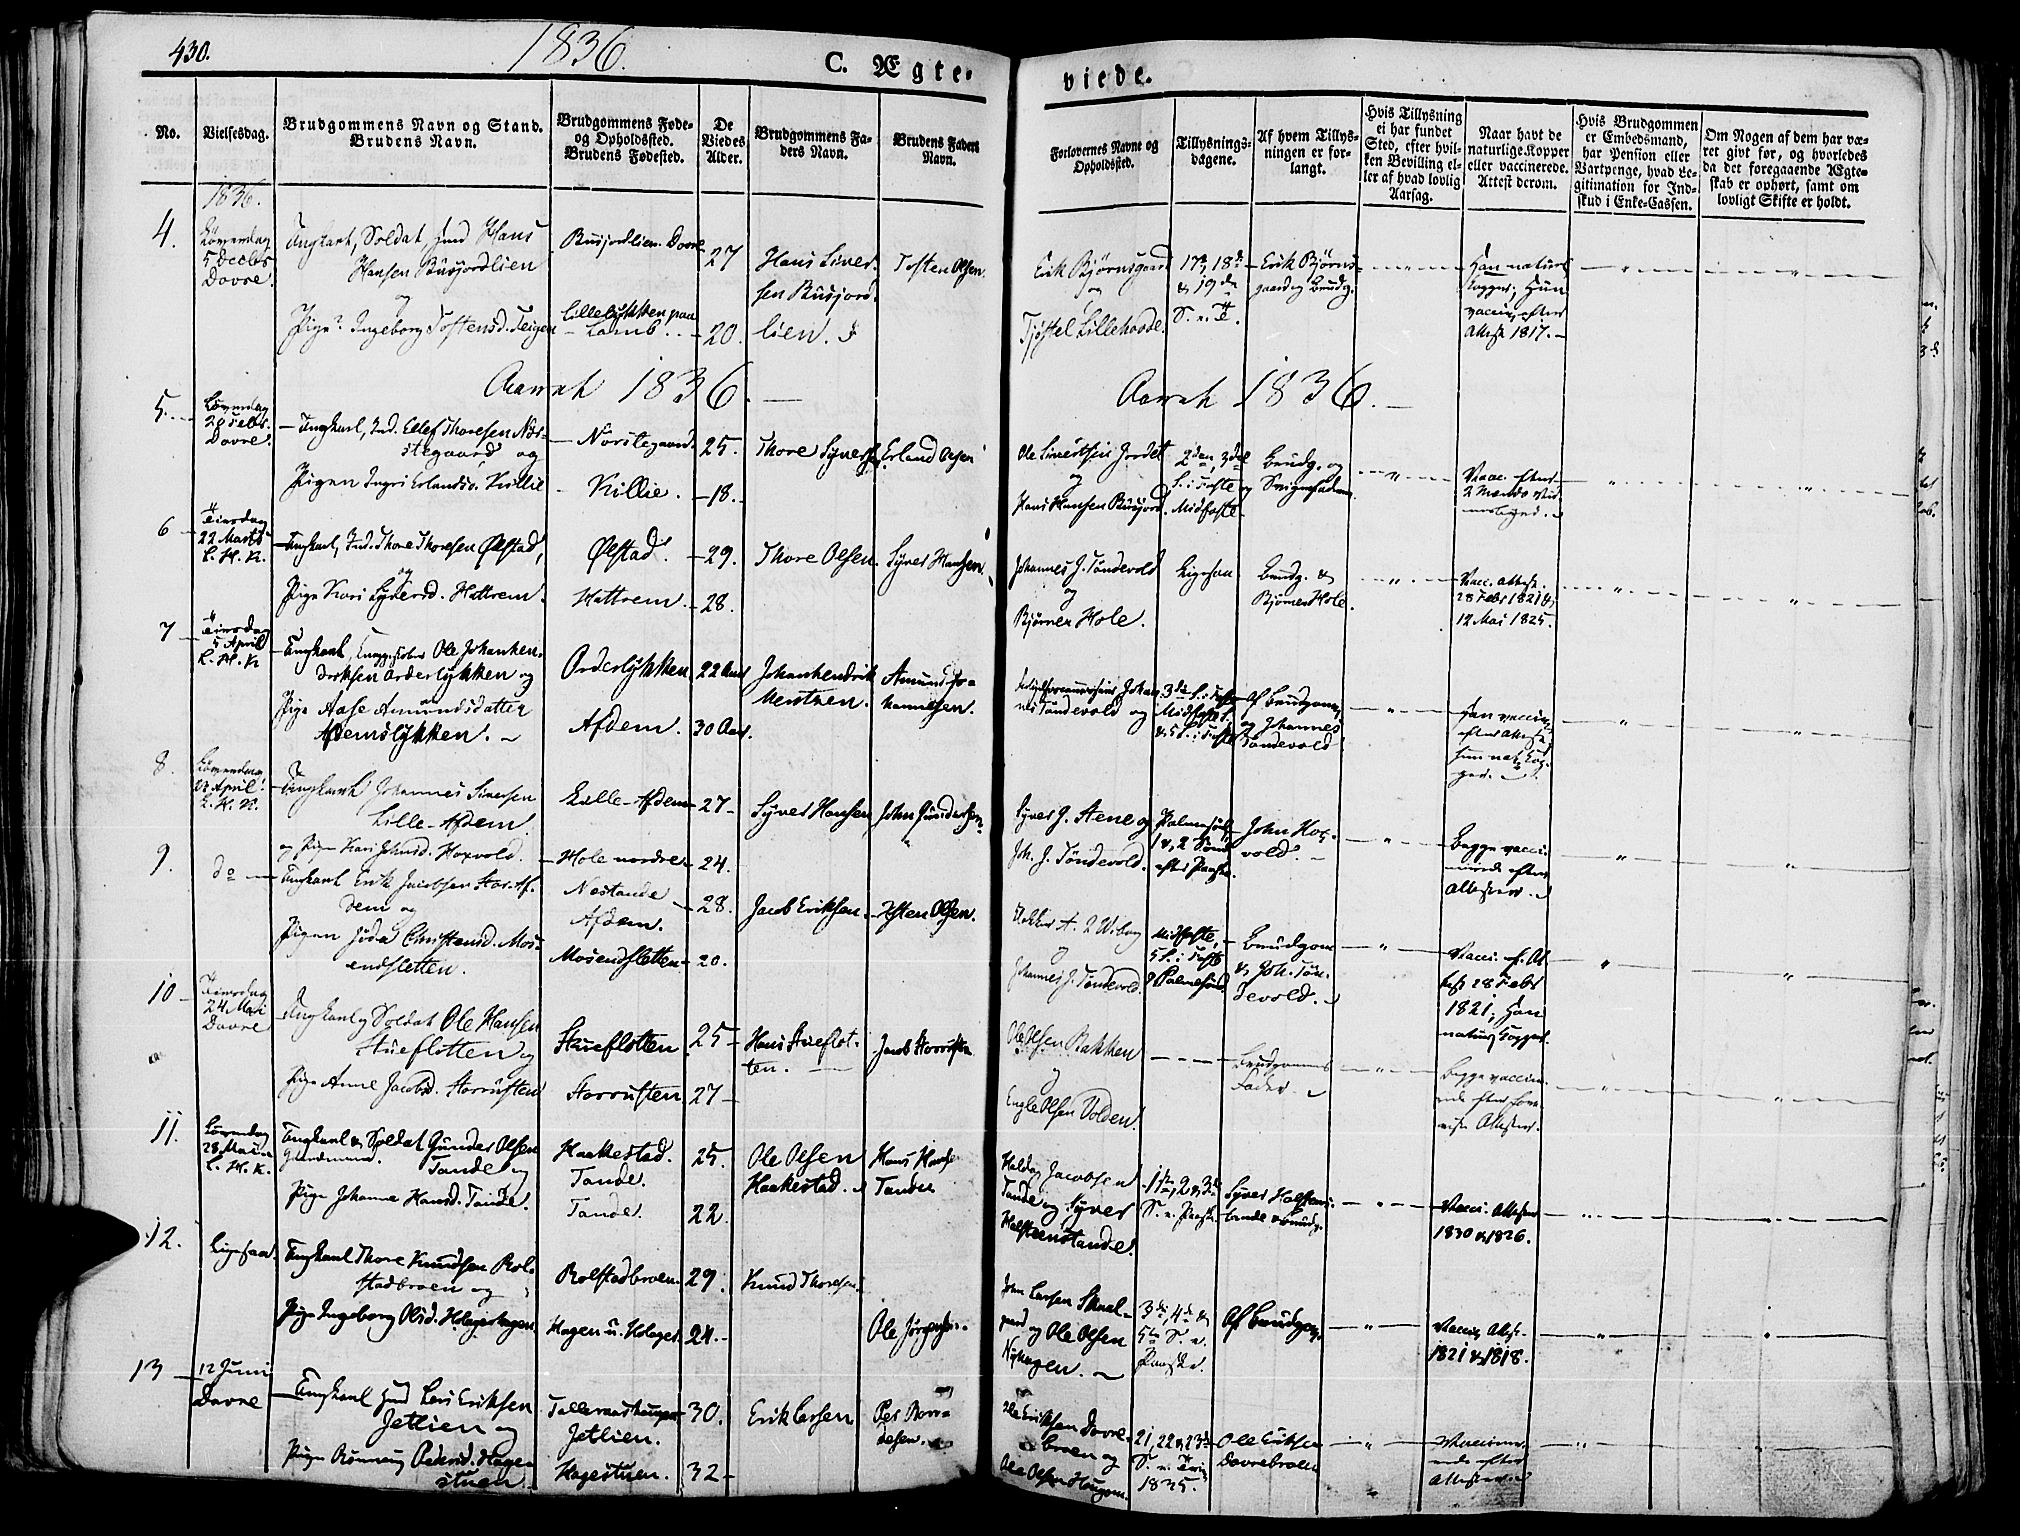 430.
1836.
C. Ægte-
viede.
No.
Vielsesdag.
Brudgommens Navn og Stand.
Brudens Navn.
Brudgommens Føde-
og Opholdssted.
Brudens Fødested.
De
Viedes
Alder.
Brudgommens Fa-
ders Navn.
Brudens Faders
Navn.
Forlovernes Navne og
Opholdssted.
Tillysnings-
dagene.
Af hvem Tillys-
ningen er for-
langt.
Hvis Tillysning
ei har fundet
Sted, efter hvil-
ken Bevilling el-
ler af hvad lovlig
Aarsag.
Naar havt de
naturlige Kopper
eller vaccinerede.
Attest derom.
Hvis Brudgommen
er Embedsmand,
har Pension eller
Vartpenge, hvad Le-
gitimation for Ind-
skud i Enke-Cassen.
Om Nogen af dem har væ-
ret givt før, og hvorledes
da det foregaaende Ægte-
skab er ophørt, samt om
lovligt Skifte er holdt.
1836.
4.
Løverdag
5 Decbr
Dovre.
Ungkarl, Soldat, Hans
Hansen Busjordlien
og
Pige Ingeborg Tostensd. Teigen
Busjordlien Dovre
Lillelykken paa
27
20.
Hans Siver-
sen Busjord-
lien.
Tosten Olsen.
Erik Bjørnsgaard
og
Tjøstel Lillehovde.
17de, 18de
& 19de
S. e. T.
Erik Bjørns-
gaard og Brudg.
Han naturl.
Kopper, Hun
vaccin. efter
Attest 1817.
Aaret 1836.
Aaret 1836.
5.
Løverdag
Dovre.
Ungkarl, Ind. Ellef Thoresen Nor-
stegaard og
Pigen Ingri Erlandsd. Killie
Norstegaard
Killie.
25.
18.
Thore Syversen
Erland Olsen
Ole Sivertsen Jordet
og
Hans Hansen Busjord.
2den, 3die
S. i Faste og
Midfaste
Brudg. og
Svigerfaderen
Vacc. efter
2 Mænds Vid-
6
Tiirsdag
22 Marts
L. H. K.
Ungkarl, Ind. Thore Thoresen Ølstad,
og
Pige Kari Syversd. Hattrem.
Ølstad.
Hattrem
29.
28.
Thore Olsen.
Syver Hansen
Johannes J. Tøndevold
og
Bjørner Hole.
Ligesaa
Brudg. &
Bjørner Hole.
Vacc. Attest.
28 Febr 1821 &
12 Mai 1825.
7
Tiirsdag
5 April
L. H. K
Ungkarl, Ole Johanhen-
driksen Orderlykken og
Pige Aase Amundsdatter
Afdemslykken.
Orderlykken
Afdem.
22 Aar
30 Aar.
Johanhendrik
Mentzen.
Amund Jo-
hannesen.
Johan-
nes Tøndevold og
3die S. i Faste
Midfaste
& 5 S. i Faste
Af Brudgom
og Johannes
Tøndevold
Han vaccin.
efter Attest,
Hun nat. Kop-
per.
8.
Løverdag
April
L. H. K.
Ungkarl Johannes Siversen
Lille-Afdem.
og Pige Kari Johnsd. Hoxvold.
Lille-Afdem
Hole nordre
27
24.
Syver Hansen
John Gundersen
Syver J. Steneog
Joh. J. Tøndevold.
Palmesønd
1 & 2 Sønd
efter Paaske.
John Hox-
vold.
Begge vacci-
nerede efter
Attester.
9.
do
Ungkarl Erik Jacobsen Stor-Af-
dem og
Pigen Christensd. Mos-
endsletten.
Nestande
Afdem.
Mosendsletten
28.
20.
Jacob Eriksen.
Olsen.
Klokker A. Z. Wiborg
og
Johannes J. Tøndevold.
Midfaste,
5 S. i Faste
& Palmesønd.
Brudgom
& Joh. Tøn-
devold.
Vacci. ef. At-
test 28 Febr
1821, Han
naturl. Kopper.
10
Tiirsdag
24 Mai
Dovre
Ungkarl, Soldat Ole Hansen
Stueflotten og
Pige Anne Jacobsd. Storrusten
Stueflotten
Storrusten
25
27
Hans Stueflot-
ten.
Jacob Storrusten
Ole Olsen Bakken
og
Engle Olsen Volden.
Brudgommens
Fader.
Begge vaccine-
rede efter fore-
viste Attester.
11.
Løverdag
28 Mai
L. H. K.
Ungkarl & Soldat Gunder Olsen
Tande og
Pige Johanne Hansd. Tande.
Haakestad.
Tande.
Tande.
25.
22.
Ole Olsen
Haakestad.
Hans
Tande
Haldog Jacobsen
Tande og Syver
Halsteenstande.
1ste, 2 & 3die
S. e. Paaske
Syver Halsteens-
tande & Brudg.
Vacci. Attester
1830 & 1826.
12.
Ligesaa
Ungkarl Thore Knudsen Rol-
stadbroen og
Pige Ingeborg Olsd. Holagerhagen
Rolstadbroen.
Hagen u. Holager.
29.
24.
Knud Thoresen.
Ole Jørgensen
John Larsen Skaal-
gaard og Ole Olsen
Nyhagen.
3die, 4de &
5te S. e.
Paaske.
Af Brudgom.
Vaccin. Attest.
1821 & 1818.
13
12 Juni
Dovre
Ungkarl Lars Eriksen
Jetlien og
Pige Rønnoug Pedersd. Hage-
stuen
Jetlien.
Hagestuen.
30.
32
Erik Larsen
Per
Ole Eriksen Dovre-
broen og
Ole Olsen Haugom.
21, 22 & 23de
S. e. Trin
1835.
Ole Eriksen
Dovrebroen
Vaccine-
rede efter
Attester.